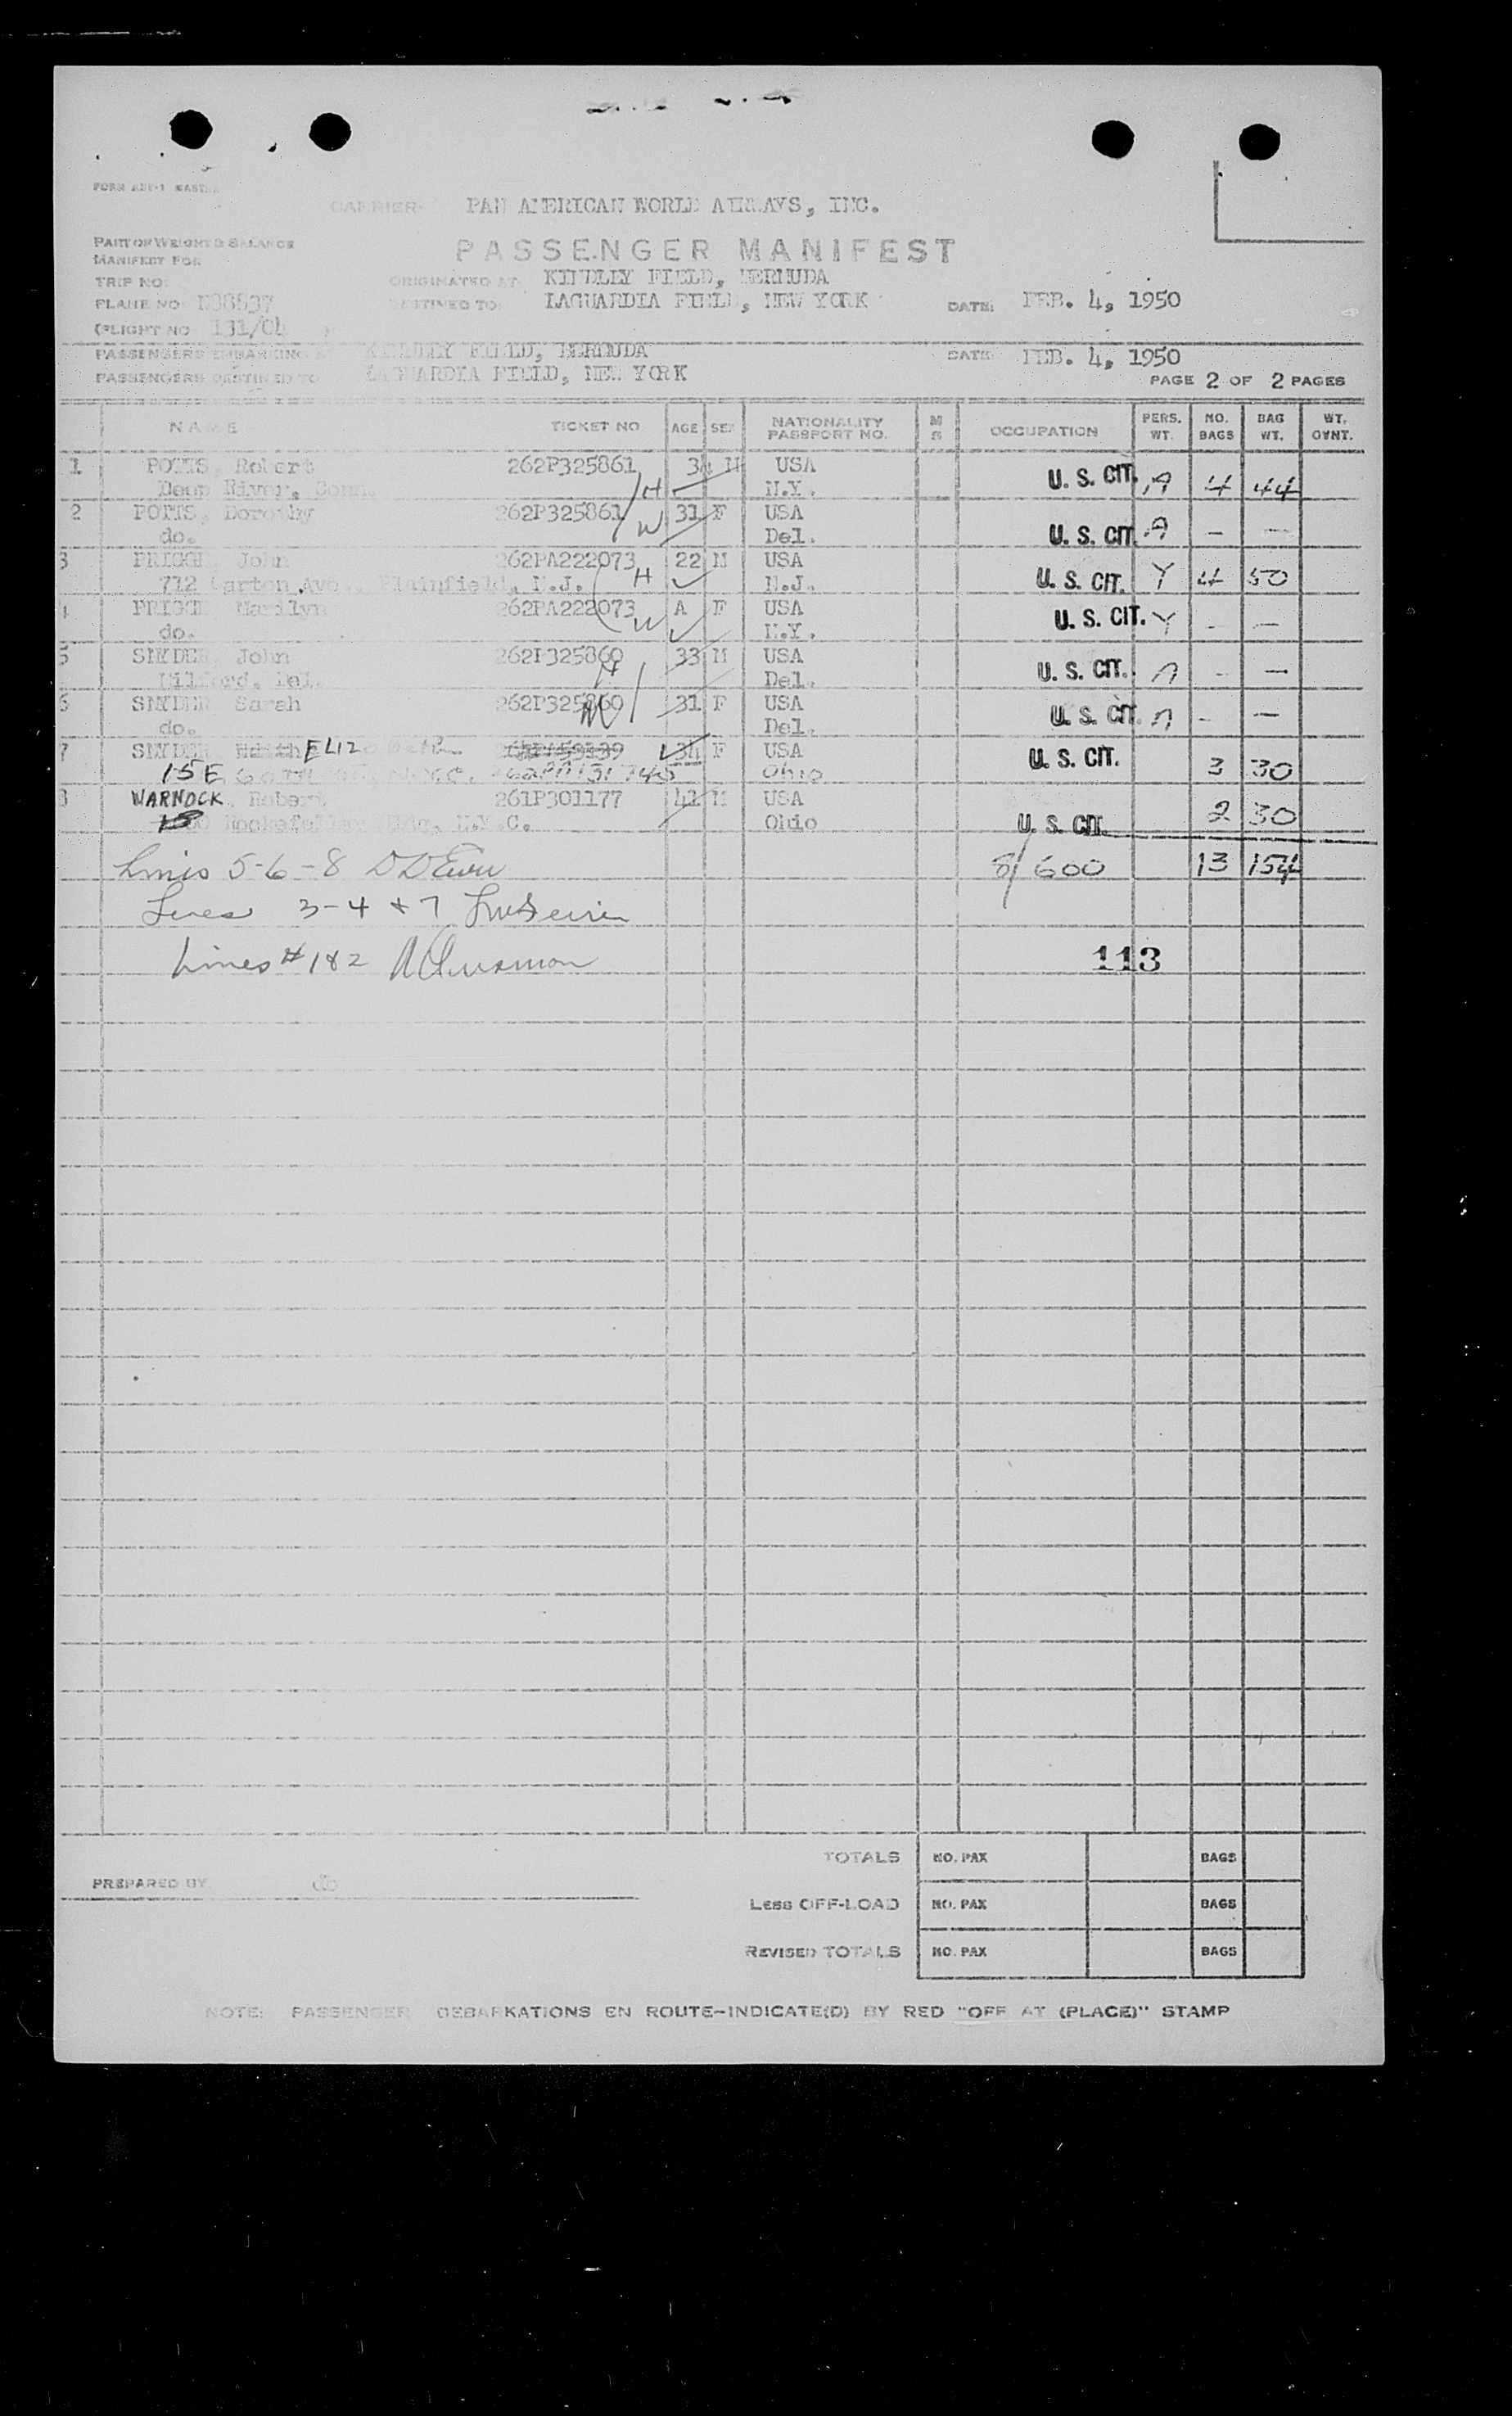 CARRIER- PAN AMERICAN WORLD AIRWAYS, INC.
PART OF WEIGHT & BALANCE
MANIFEST FOR
PASSENGER MANIFEST
TRIP NO. ORIGINATED AT KINDLEY FIELD, BERMUDA
PLANE NO. N88837 DESTINED TO: LAGUARDIA FIELD, NEW YORK DATE: FEB. 4, 1950
(FLIGHT NO 131/04 )
PASSENGERS EMBARKING AT KINDLEY FIELD, BERMUDA DATE FEB. 4, 1950
PASSENGERS DESTINED TO LAGUARDIA FIELD, NEW YORK
PAGE 2 OF 2 PAGES
NAME TICKET NO AGE SEX NATIONALITY PASSPORT NO. M S OCCUPATION PERS. WT. NO. BAGS BAG WT. WT. OVNT.
1 POTTS, Robert 262P325861 34 M USA U. S. CIT. A 4 44
Deep River, Conn. H N.Y.
2 POTTS, Dorothy 262P325861 31 F USA U. S. CIT. A - -
do. W Del.
3 John 262PA222073 22 M USA U. S. CIT. Y 4 50
712 Ave., Plainfield, N.J. H N.J.
4 Marilyn 262PA222073 A F USA U. S. CIT. Y - -
do. W N.Y.
5 SNYDER, John 262P325860 33 M USA U. S. CIT. A - -
Milford, Del. H Del.
6 SNYDER, Sarah 262P325860 31 F USA U. S. CIT. A - -
do. W Del.
7 SNYDER, ELIZ 34 F USA U. S. CIT. 3 30
15 E Ohio
8 WARNOCK, Robert 261P301177 41 M USA U. S. CIT. 2 30
Rockefeller Bldg. N.Y.C. Ohio
Lines 5-6-8 8/600 13 154
Lines 3-4 & 7
Lines # 1&2
113
TOTALS NO. PAX BAGS
PREPARED BY
LESS OFF-LOAD NO. PAX BAGS
REVISED TOTALS NO. PAX BAGS
NOTE: PASSENGER DEBARKATIONS EN ROUTE-INDICATE(D) BY RED "OFF AT (PLACE)" STAMP